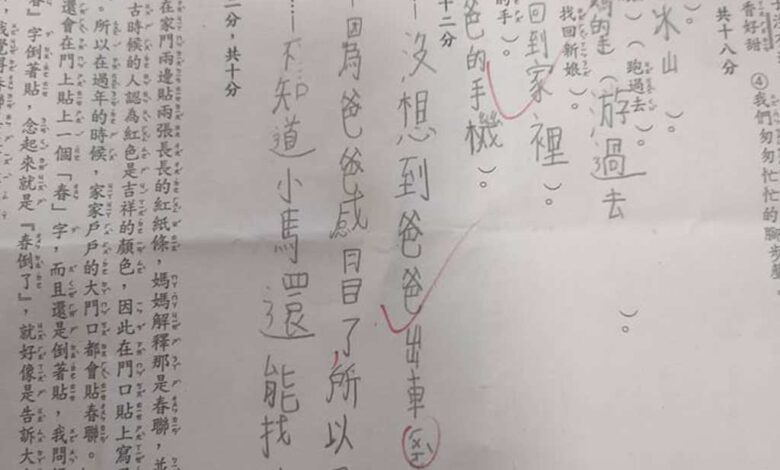 香好甜 ④我們匆匆忙忙的腳步
共十八分
冰山）。
（跑過去）。
（游過去）。
找回新娘
回到家裡）。
的手）。
爸的手機）。
十二分
沒想到爸爸出車
因為爸爸感冒了,所以
不知道小馬還能找
二分，共十分
在家門兩邊貼兩張長長的紅紙條，媽媽解釋那是春聯，並
古時候的人認為紅色是吉祥的顏色，因此在門口貼上寫
。所以在過年的時候，家家戶戶的大門口都會貼春聯。
還會在門上貼上一個「春」字，而且還是倒著貼，我問
」字倒著貼，念起來就是『春倒了』，就好像是告訴大